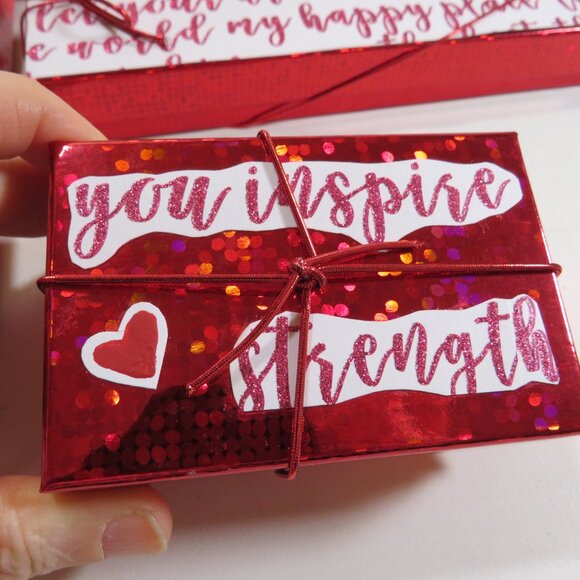 your
world my happy place
you inspire
strength